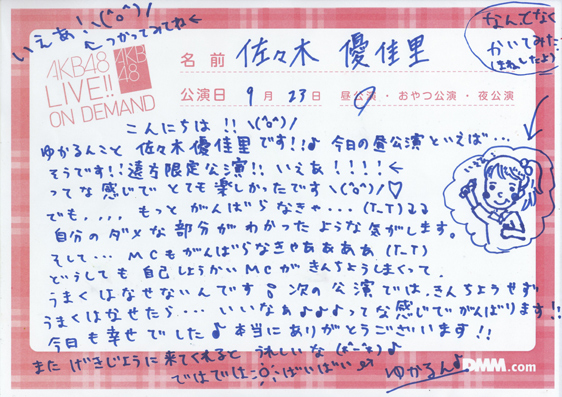 いえあ!\(^o^)/
←つかってみてね←
AKB48
LIVE!!
ON DEMAND
AKB
48
名前 佐々木 優佳里
公演日 9月23日 昼公演・おやつ公演・夜公演
なんてなく
かいてみた
こんにちは!!\(^o^)/
ゆかるんこと 佐々木優佳里です!!♪ 今日の昼公演といえば…
そうです!!遠方限定公演!! いえあ!!!!←
ってな感じで とても楽しかったです\(^o^)/♡
でも,,,, もっと がんばらなきゃ…(T_T)るる
自分のダメな部分が わかったような気がします。
そして… MCもがんばらなきゃああああ(T_T)
どうしても 自己しょうかいMCが きんちょうしまくって、
うまくはなせないんです 次の公演では、きんちょうせず
うまくはなせたら… いいなぁ♪♪♪ってな感じでがんばります!!
今日も幸せでした♪本当にありがとうございます!!
また げきじょうに来てくれると うれしいな
ではでは ばいばい
ゆかるん♪
DMM.com
いえい